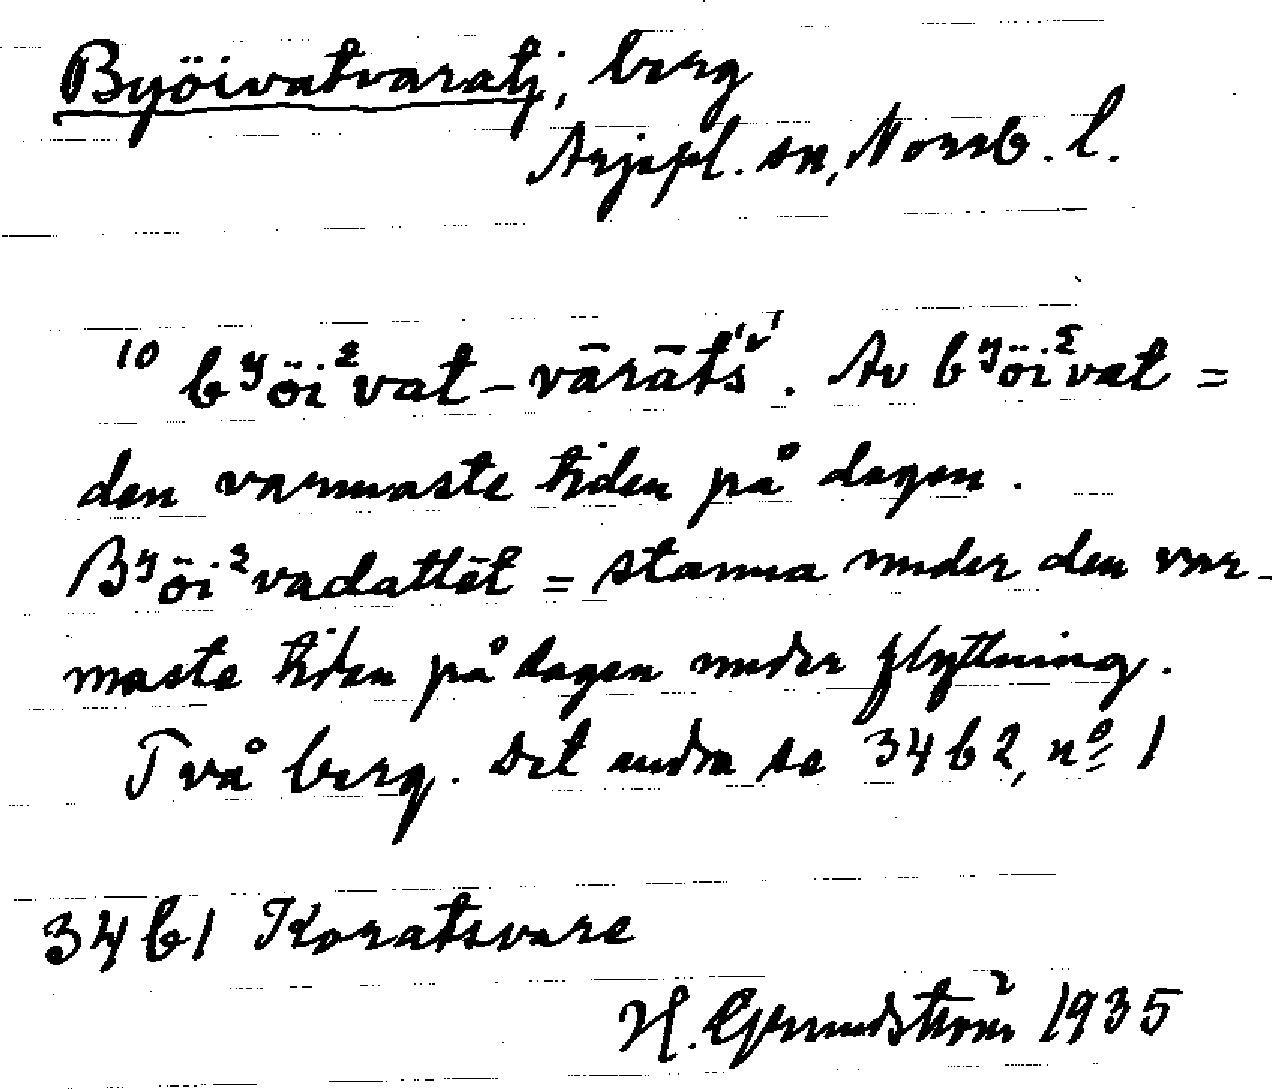 Byöivatvaratj, berg
Arjepl. sn, Norrb. l.
10 bʸöi²vat-vārāts̓́. Av bʸöi²vat =
den varmaste tiden på dagen.
Bʸöi²vadattēt = stanna under den var-
maste tiden på dagen under flyttning.
Två berg. Det andra se 34 b 2, nº 1
34 b 1 Koratsvare
H. Grundström 1935